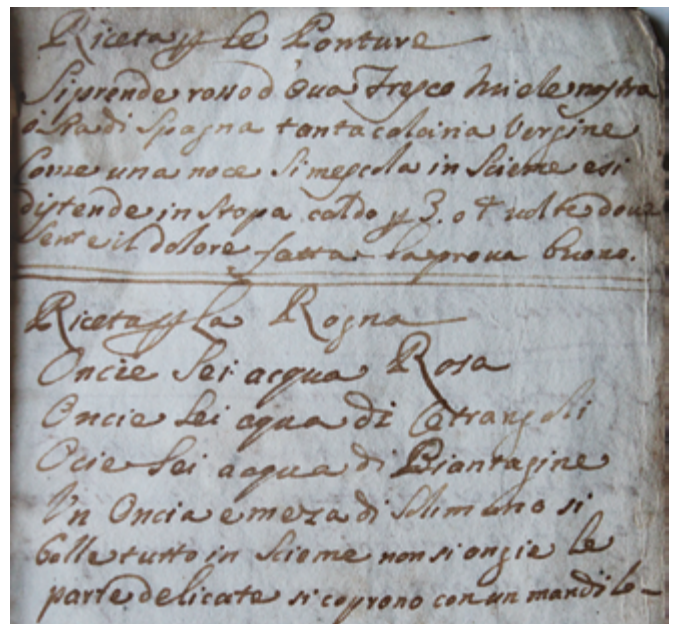 Riceta p le Ponture
Si prende rosso d'ova Fresco Miele nostra
o stra di Spagna tanta
Come una noce Si mescola in Scieme e si
distende in stopa caldo p 3. o 4 volte dove
sente il dolore fatta la prova buono.
Riceta p La Rogna
Oncie Sei acqua Rosa
Oncie Sei aqua di Cetrangoli
Ocie Sei acqua di Piantagine
Un Oncia e meza di Solimano si
bolle tutto in Scieme non si ongie le
parte delicate si coprono con un mandilo-